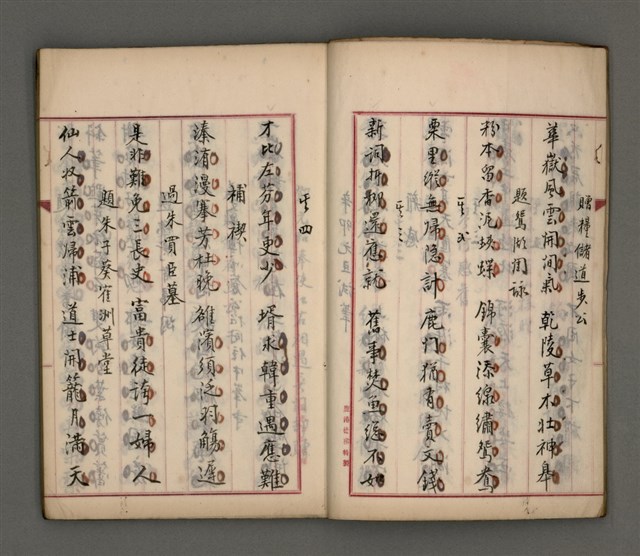 贈糧儲道朱公
華嶽風雲開間氣 乾陵草木壯神皋
題鴛湖閨詠
粉本留香泥蛺蝶 錦囊添線繡鴛鴦
其二
栗里縱無歸隱計 鹿門猶有賣文錢
其三
新詞折柳還應就 舊事焚魚總不如
其四
才比左芬年更少 壻求韓重遇應難
補禊
溱洧漫搴芳杜晚 雒濱須泛羽觴遲
過朱買臣墓
是非難免三長史 富貴徒誇一婦人
題朱子葵崔洲草堂
仙人收箭雲歸浦 道士開籠月滿天